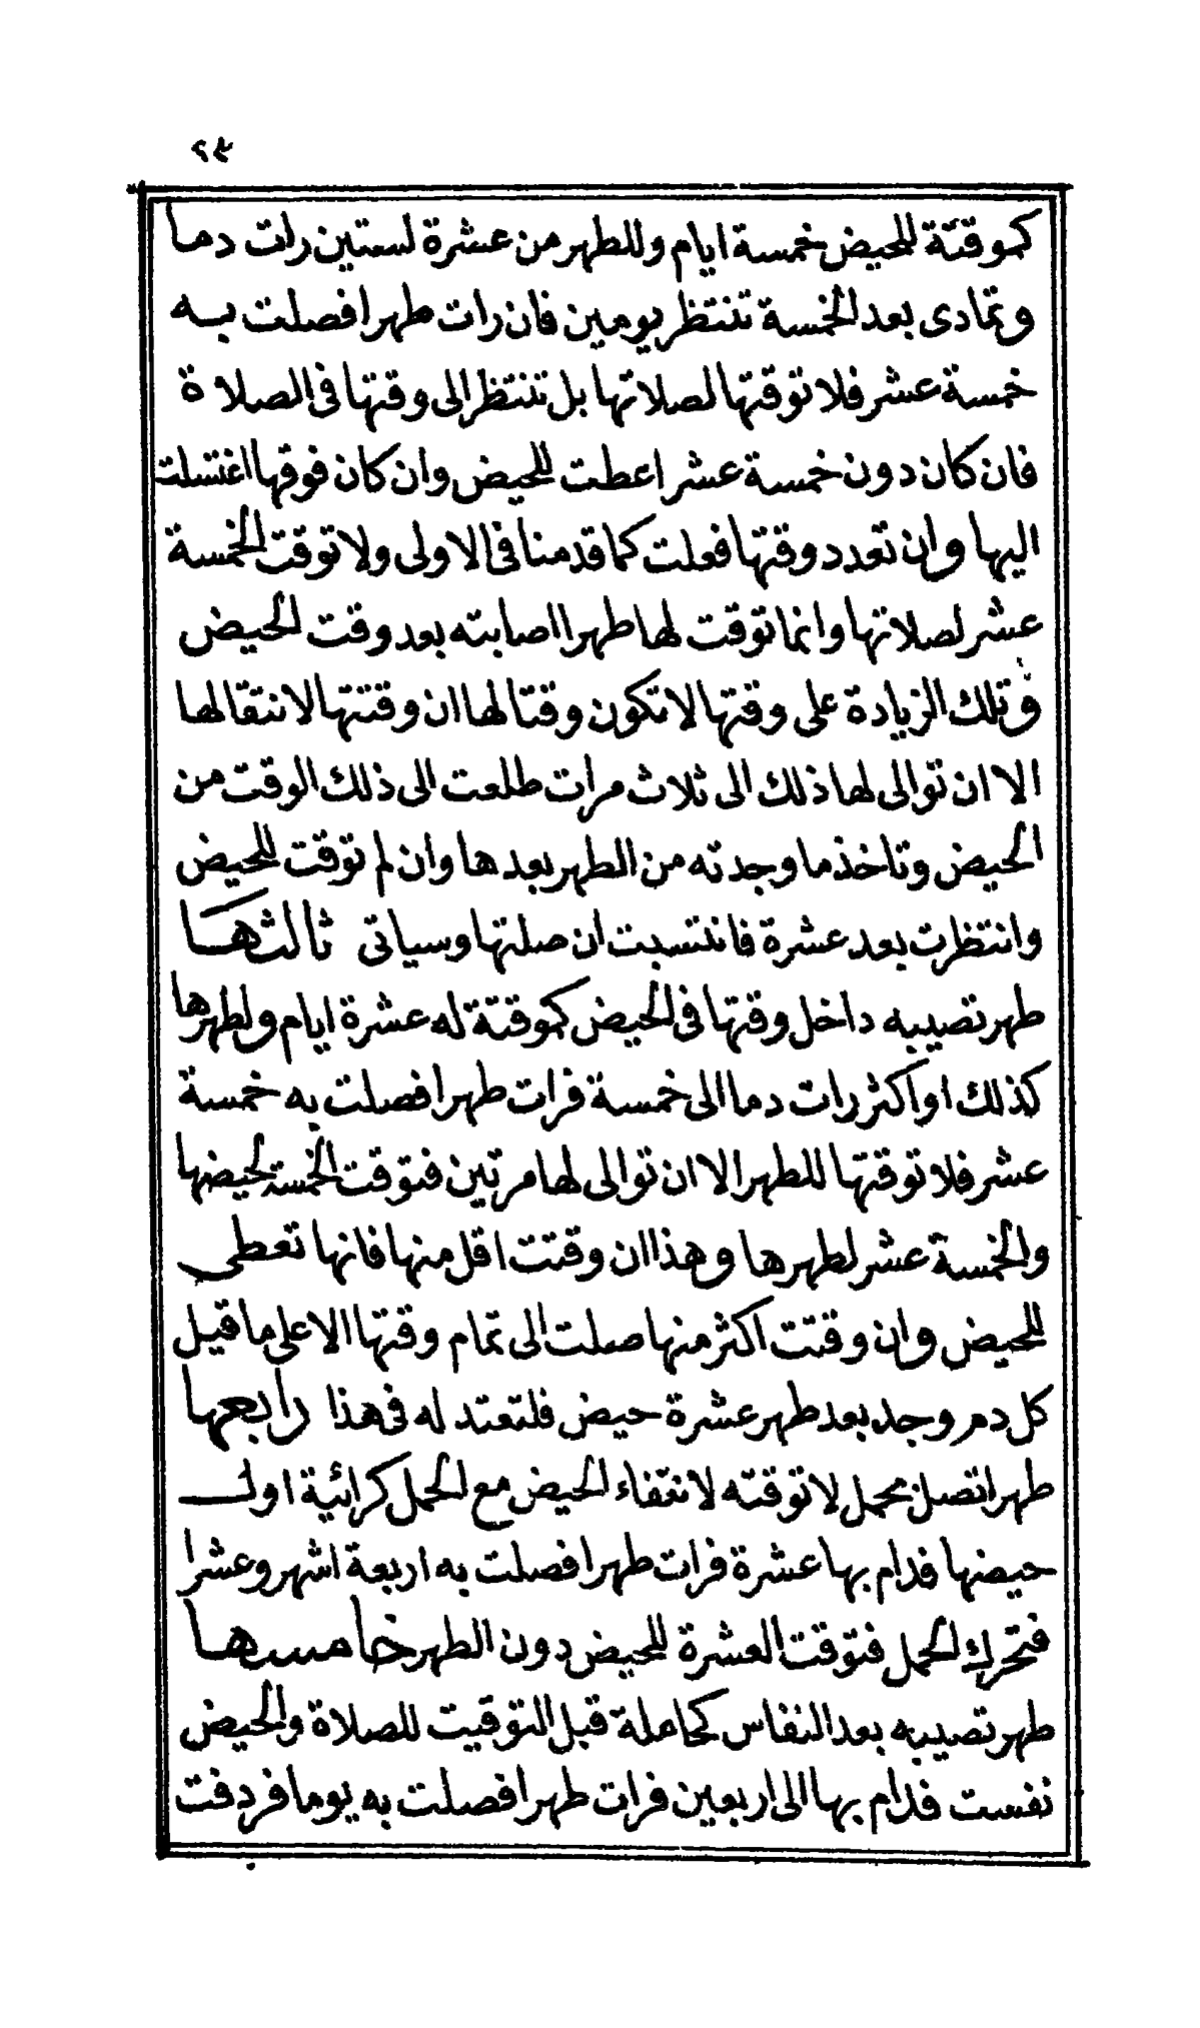 ٢٤
كموقتة للحيض خمسة ايام وللطهر من عشرة لستين رات دما
وتمادى بعد الخمسة تنتظر يومين فان رات طهرا فصلت به
خمسة عشر فلا توقتها لصلاتها بل تنتظر الى وقتها فى الصلاة
فان كان دون خمسة عشر اعطت للحيض وان كان فوقها اغتسلت
اليها وان تعدد وقتها فعلت كما قدمنا فى الاولى ولا توقت الخمسة
عشر لصلاتها وانما توقت لها طهرا اصابته بعد وقت الحيض
وتلك الزيادة على وقتها لا تكون وقتا لها ان وقتتها لانتقالها
الا ان توالى لها ذلك الى ثلاث مرات طلعت الى ذلك الوقت من
الحيض وتاخذ ما وجدته من الطهر بعدها وان لم توقت للحيض
وانتظرت بعد عشرة فانتسبت ان صلتها وسياتى ثالثها
طهر تصيبه داخل وقتها فى الحيض كموقتة له عشرة ايام ولطهرها
كذلك او اكثر رات دما الى خمسة فرات طهرا فصلت به خمسة
عشر فلا توقتها للطهر الا ان توالى لها مرتين فتوقت الخمسة لحيضها
والخمسة عشر لطهرها وهذا ان وقتت اقل منها فانها تعطى
للحيض وان وقتت اكثر منها صلت الى تمام وقتها الا على ما قيل
كل دم وجد بعد طهر عشرة حيض فلتعتد له فى هذا رابعها
طهر اتصل بحمل لا توقته لانتفاء الحيض مع الحمل كرائية اول
حيضها فدام بها عشرة فرات طهرا فصلت به اربعة اشهر وعشرا
فتحرك الحمل فتوقت العشرة للحيض دون الطهر خامسها
طهر تصيبه بعد النفاس كحاملة قبل التوقيت للصلاة والحيض
نفست فدام بها الى اربعين فرات طهرا فصلت به يوما فردفت